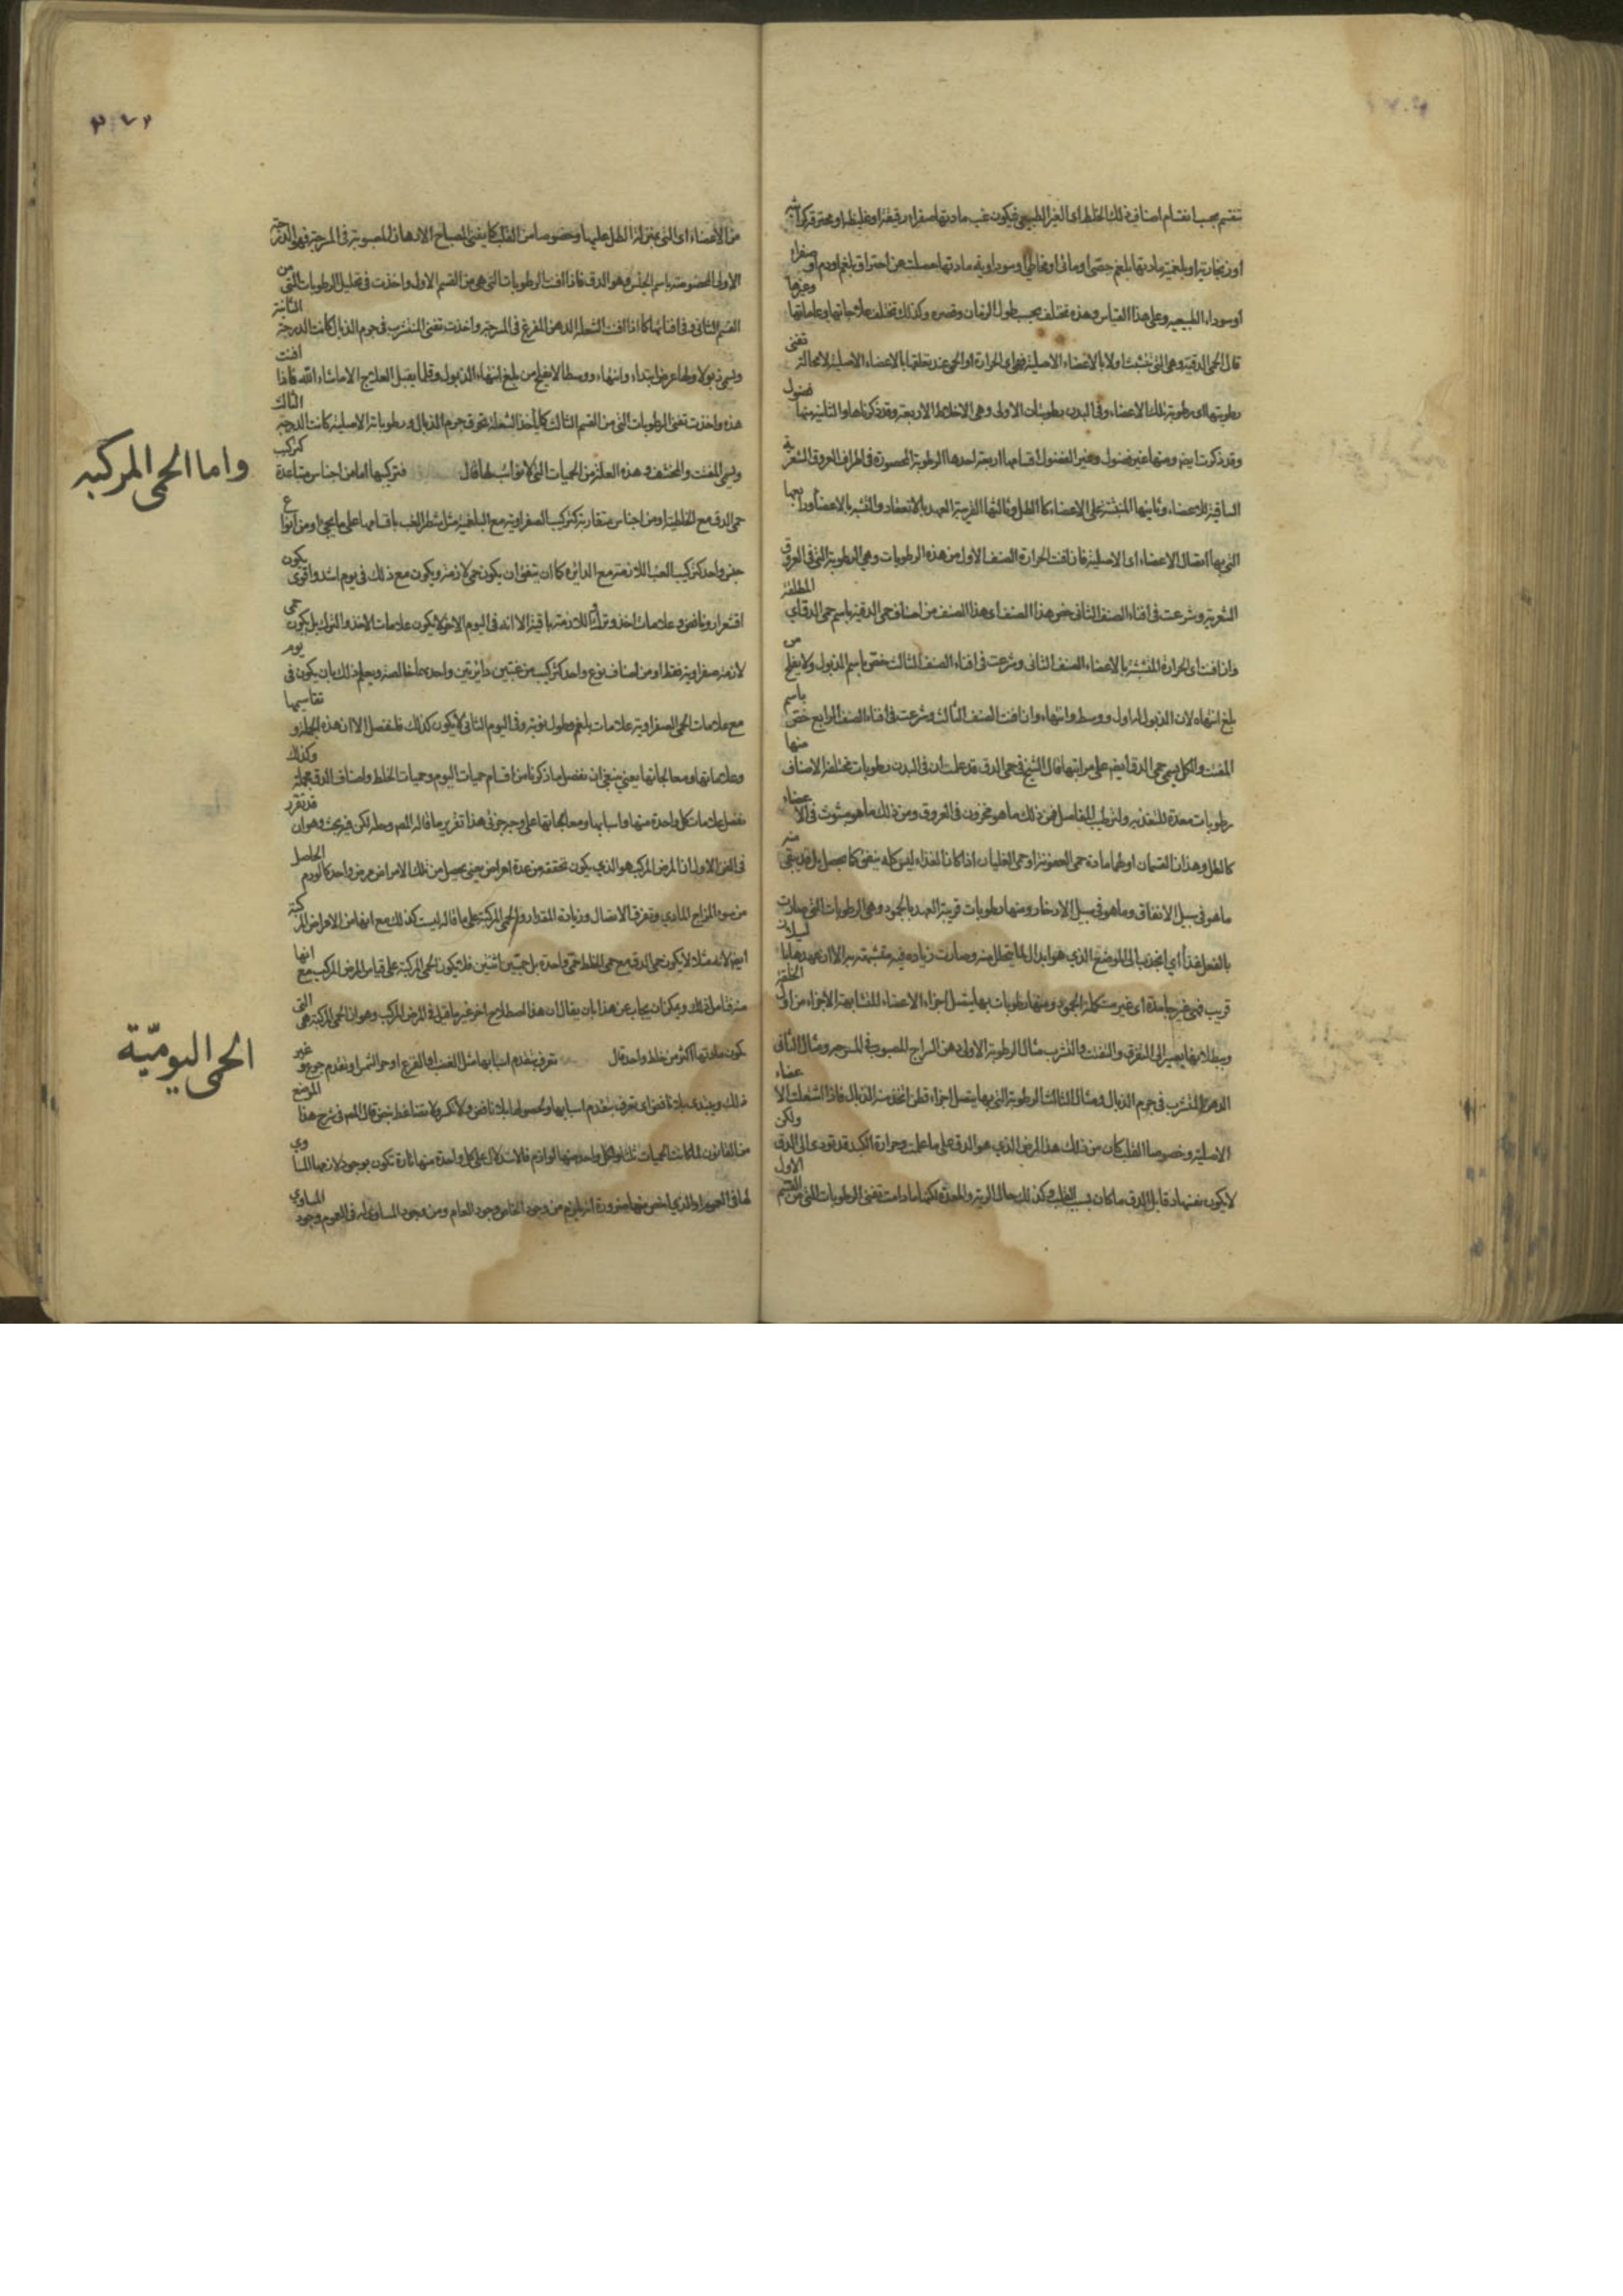 تنقسم بحسب انقسام اصناف ذلك الخلط اى الغير الطبيعى فيكون غب مادتها صفراء رقيقة او غليظة او محترقة كراثية
او زنجارية او بلغمية مادتها بلغم جصى او مائى او مخاطى او سوداوية مادتها حصلت عن احتراق بلغم او دم او صفراء
او سوداء الطبيعية وعلى هذا القياس وهذه تختلف بحسب طول الزمان وقصره وكذلك تختلف علاجاتها وعلاماتها وغيرها
قال الحمى الدقية وهى التى تتشبث اولا بالاعضاء الاصلية فهى اى الحرارة او الحمى عند تعلقها بالاعضاء الاصلية لا محالة تفنى
رطوبتها اى رطوبة تلك الاعضاء وفى البدن رطوبات الاولى وهى الاخلاط الاربعة وقد ذكرناها والثانية منها فضول
وقد ذكرت ايضا ومنها غير فضول وغير الفضول اقسامها اربعة احدها الرطوبة المحصورة فى اطراف العروق الشعرية
الساقية للاعضاء وثانيها المنبثة على الاعضاء كالطل وثالثها القريبة العهد بالانعقاد والتشبه بالاعضاء ورابعها
التى بها اتصال الاعضاء اى الاصلية فان افنت الحرارة الصنف الاول من هذه الرطوبات وهى الرطوبة التى فى العروق
الشعرية وشرعت فى افناء الصنف الثانى خص هذا الصنف اى هذا الصنف من اصناف حمى الدقية باسم حمى الدق اى المطلقة
وان افنت اى الحرارة المتشبثة بالاعضاء الصنف الثانى وشرعت فى افناء الصنف الثالث خص باسم الذبول ولا يفلح من
بلغ انتهاه لان الذبول له اول ووسط وانتهاء وان افنت الصنف الثالث وشرعت فى افناء الصنف الرابع خص باسم
المفتت والكل يسمى حمى الدق ايضا على مراتبها قال الشيخ فى حمى الدق قد علمت ان فى البدن رطوبات مختلفة الاصناف منها
رطوبات معدة للتغذية ولترطيب المفاصل فمن ذلك ما هو مخزون فى العروق ومن ذلك ما هو مبثوث فى الاعضاء
كالطل وهذان القسمان اولهما مادة حمى العفونة او حمى الغليان اذا كان الغذاء ليس كله ينفق كما يحصل بل قد يبقى منه
ما هو فى سبيل الانفاق وما هو فى سبيل الادخار ومنها رطوبات قريبة العهد بالجمود وهى الرطوبات التى صارت
بالفعل غذاء اى انجذب الى الموضع الذى هو ابدال لما يتحلل منه وصارت زيادة فيه متشبهة به الا ان عهدها بالسيلان
قريب فهى غير جامدة اى غير مستكملة الجمود ومنها رطوبات بها يتصل اجزاء الاعضاء المتشابهة الاجزاء من اول الخلقة
وببطلانها يصير الى التفرق والتفتت والتترب مثال الرطوبة الاولى دهن السراج المصبوب فى المسرجة ومثال الثانى
الدهن المتشرب فى جرم الذبال ومثال الثالث الرطوبة التى بها يتصل اجزاء قطن اتخذ منه الذبال فاذا اشتعلت الاعضاء
الاصلية وخصوصا القلب كان من ذلك هذا المرض الذى هو الدق على ما علمت وحرارة الكبد قد تودى الى الدق ولكن
لا يكون نفسها دقا بل الدق ما كان بسبب القلب وكذلك حال الرية والمعدة لكنها ما دامت تفنى الرطوبات التى من القسم الاول
من الاعضاء اى التى بمنزلة الطل عليها وخصوصا من القلب كما يفنى المصباح الادهان المصبوبة فى المسرجة فهى الدرجة
الاولى المخصوصة باسم الجنس وهو الدق فاذا افنت الرطوبات التى هى من القسم الاول واخذت فى تحليل الرطوبات التى من
القسم الثانى وفى افنائها كما اذا افنت الشعلة الدهن المفرغ فى المسرجة واخذت تفنى المتشرب فى جرم الذبال كانت الدرجة الثانية
ويسمى ذبولا ولها عرض ابتداء وانتهاء ووسط لا يفلح من بلغ انتهاء الذبول وقلما يقبل العلاج الا ما شاء الله فاذا افنت
هذه واخذت تفنى الرطوبات التى من القسم الثالث كما ياخذ الشعلة تحرق جرم الذبال ورطوباته الاصلية كانت الدرجة الثالثة
ويسمى المفتت والمحشف وهذه العلة من الحميات التى لا نوائب لها قال
واما الحمى المركبه
فتركيبها اما من اجناس متباعدة كتركيب
حمى الدق مع الخلطية او من اجناس متقاربة كتركيب الصفراوية مع البلغمية مثل شطر الغب باقسامها على ما يجئ او من انواع
جنس واحد كتركيب الغب اللازمة مع الدائرة كما ان يتفق ان يكون حمى لازمة ويكون مع ذلك فى يوم اشد واقوى يكون
اقشعرار ونافض وعلامات اخذ وترك اللازمة باقية الا انه فى اليوم الاخر لا يكون علامات الاخذ والترك بل يكون حمى
لازمة صفراوية فقط او من اصناف نوع واحد كتركيب من غبتين دائرتين واحديهما خالصة ويعلم ذلك بان يكون فى يوم
مع علامات الحمى الصفراوية علامات بلغم وطول نوبة وفى اليوم الثانى لا يكون كذلك فلنفصل الا ان هذه الجملة و تقاسيمها
وعلاماتها ومعالجاتها يعنى ينبغى ان نفصل ما ذكرنا من اقسام حميات اليوم وحميات الخلط واصناف الدق مجملة وكذلك
نفصل علامات كل واحدة منها واسبابها ومعالجاتها على وجه جزئى هذا تقرير ما قاله المص وحله لكن فيه بحث وهو ان قد تقرر
فى الفن الاول ان المرض المركب هو الذى يكون تحققه من عدة امراض يعنى يحصل من تلك الامراض مرض واحد كالورم الحاصل
من سوء المزاج المادى وتفرق الاتصال وزيادة المقدار والحمى المركبة على ما قاله ليست كذلك مع انها من الامراض المركبة
ايضا لانه مثلا لا يكون حمى الدق مع حمى الخلط حمى واحدة بل حميين اثنين فلا يكون الحمى المركبة على قياس المرض المركب مع انها
منه فتامل ذلك ويمكن ان يجاب عن هذا بان يقال ان هذا اصطلاح اخر غير ما قيل فى المرض المركب وهو ان الحمى المركبة هى التى
تكون مادتها اكثر من خلط واحد قال
الحمى اليوميّة
تعرف بتقدم اسبابها مثل الغضب او الفزع او حر الشمس او تقدم جوع و غير
ذلك ويبتدى بلا نافض اى تعرف بتقدم اسبابها وبحصولها بلا نافض ولا تكسر ولا تضاغط نبض قال المص فى شرح هذا الموضع
من القانون لما كانت الحميات ثلثا ولكل واحد منها لوازم فالاستدلال على كل واحدة منها تارة تكون بوجود لازمها المساوى
لها فى العموم او الذى اخص منها ضرورة انه يلزم من وجود الخاص وجود العام ومن وجود المساوى له فى العموم وجود المساوى